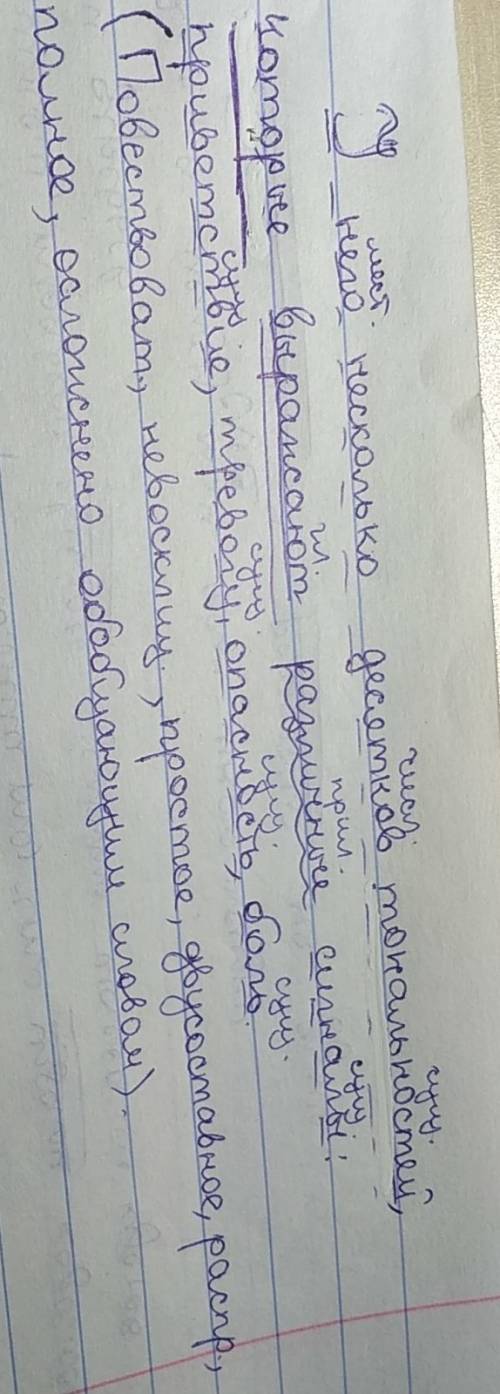 мест. числ. сущ.
У него несколько десятков тональностей,
гл. прил. сущ.
которые выражают различные сигналы:
сущ. сущ. сущ. сущ.
приветствие, тревогу, опасность, боль.
(Повествоват, невосклиц, простое, двусоставное, распр.,
полное, осложнено обобщающим словом).